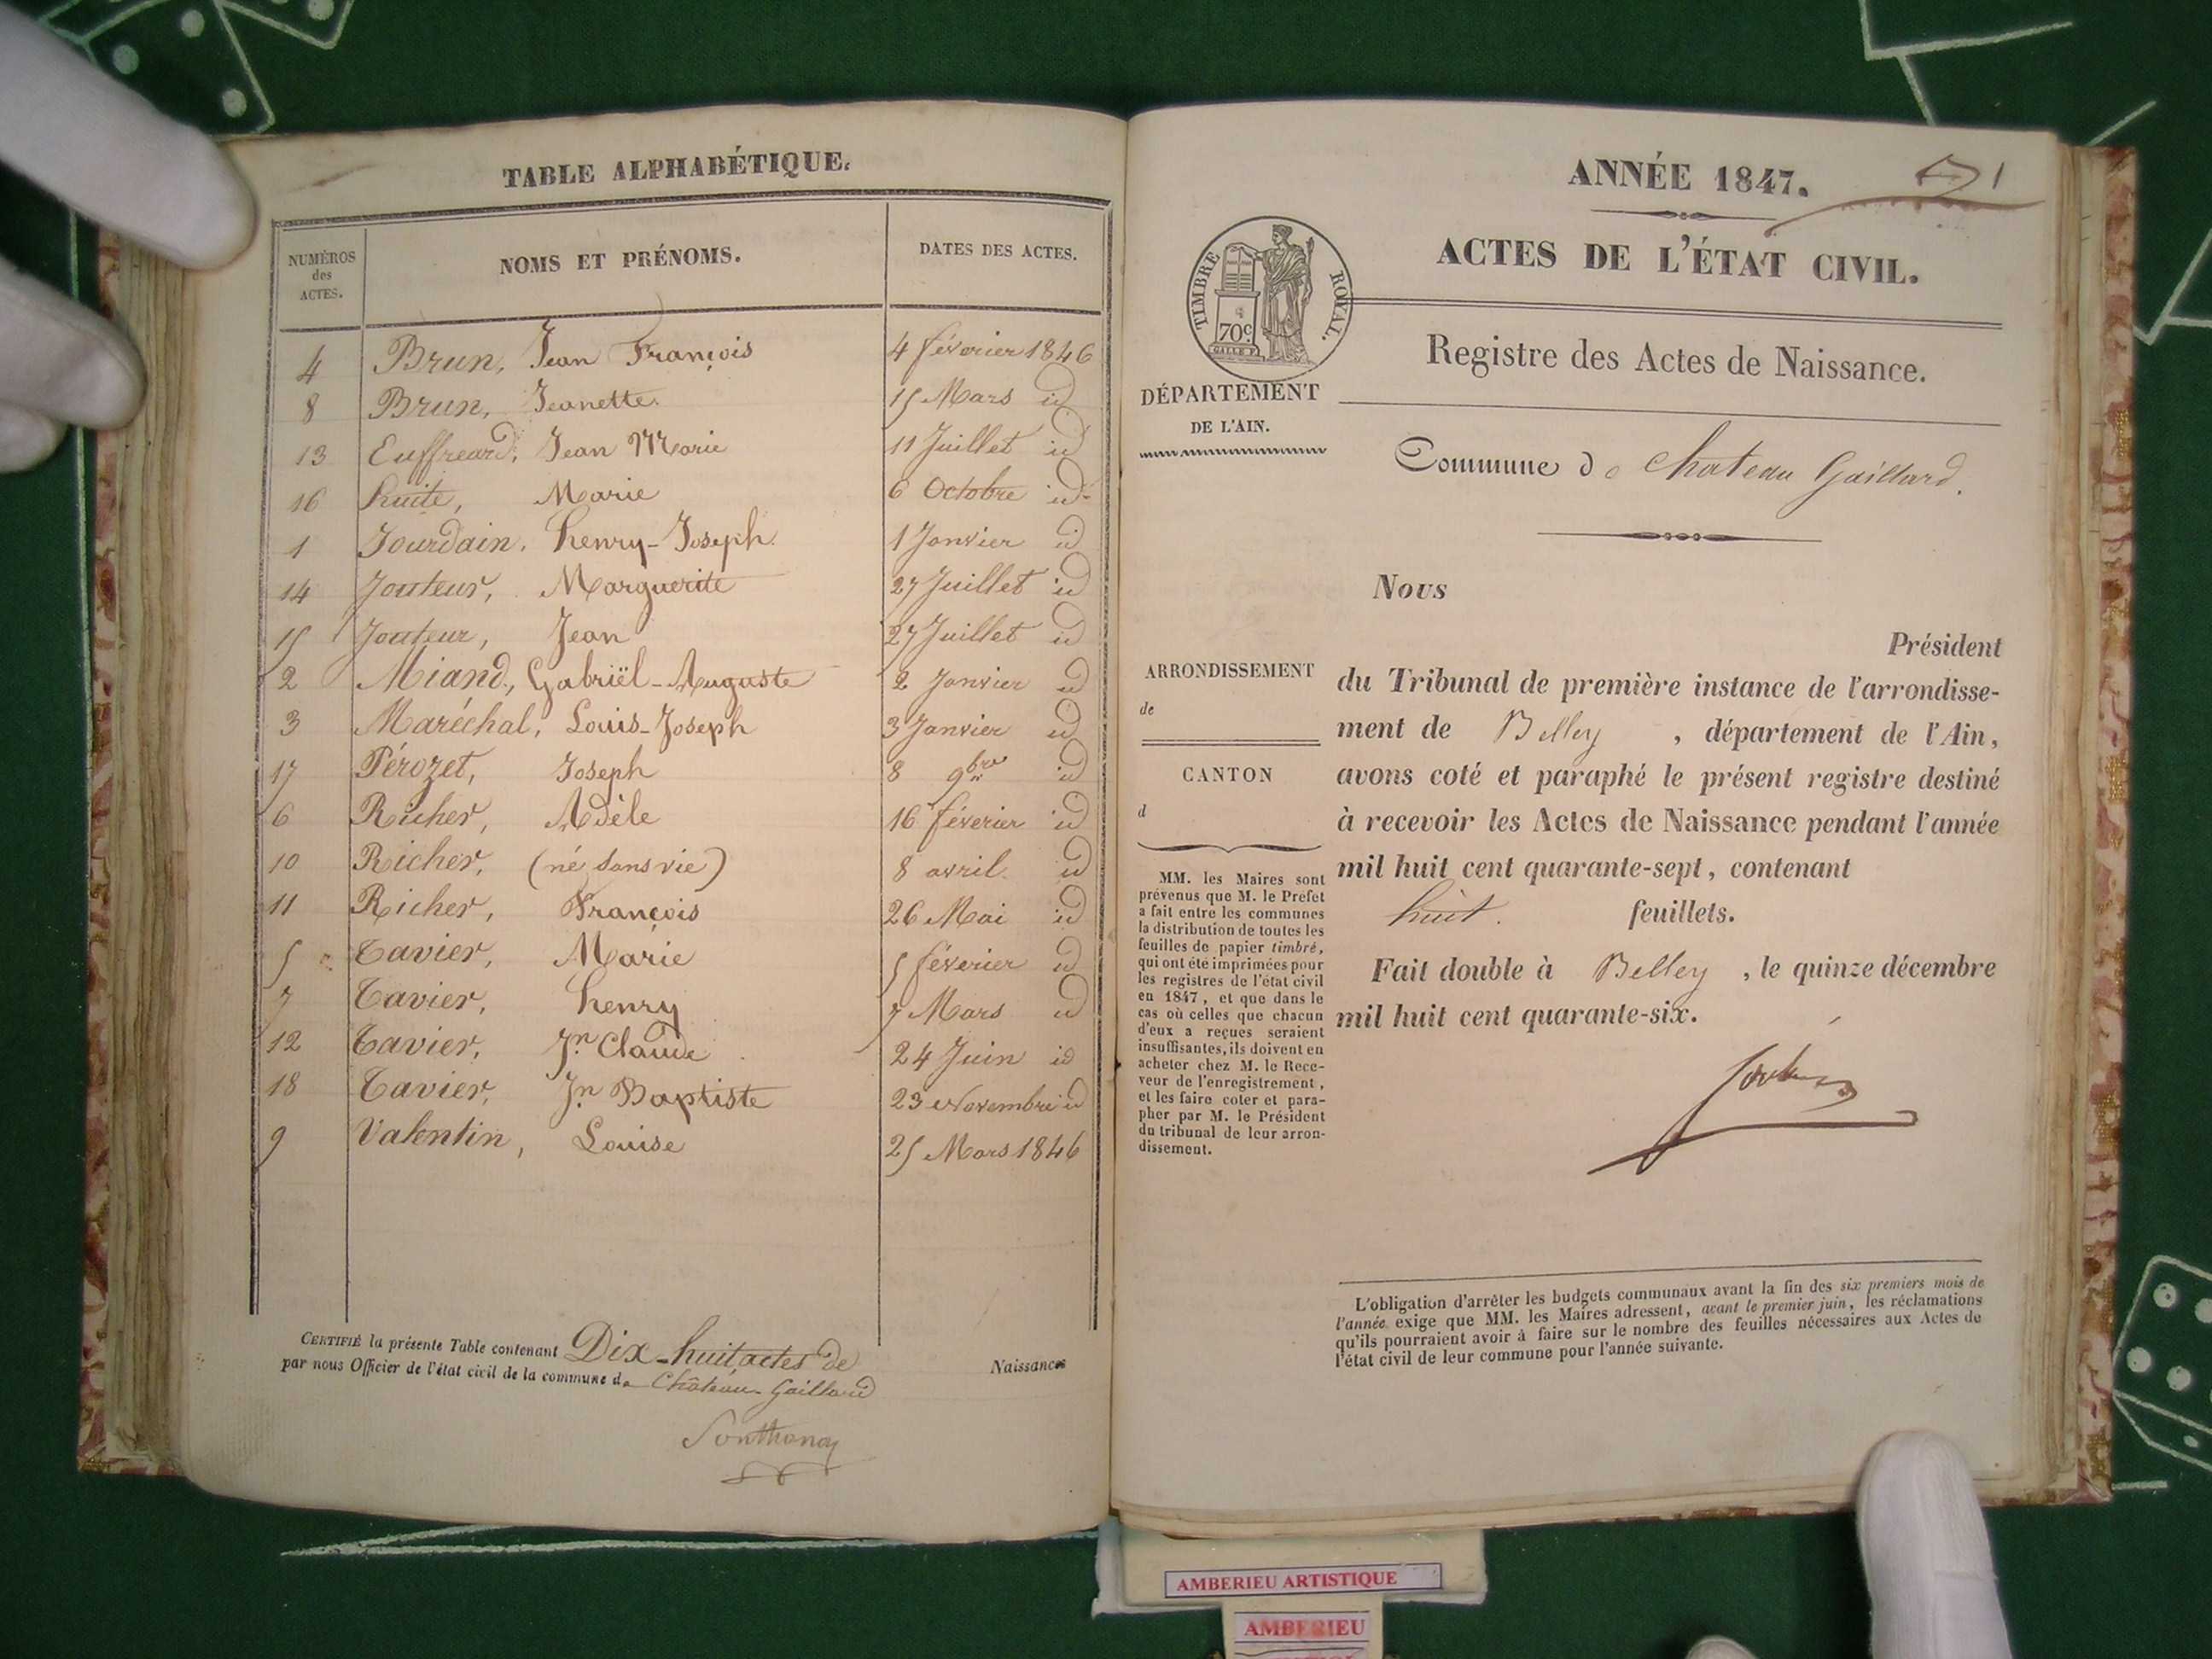 TABLE ALPHABÉTIQUE.
NUMÉROS des ACTES. NOMS ET PRÉNOMS. DATES DES ACTES.
4 Brun, Jean François 4 féverier 1846
8 Brun, Jeanette. 15 Mars id
13 Euffreard, Jean Marie 11 Juillet id
16 huite, Marie 6 Octobre id
1 Jourdain, henry-Joseph. 1 Janvier id
14 Jouteur, Marguerite 27 Juillet id
15 Jouteur, Jean 27 Juillet id
2 Miand, Gabriël-Auguste 2 Janvier id
3 Maréchal, Louis-Joseph 3 Janvier id
17 Pérozet, Joseph 8 9bre id
6 Richer, Adèle 16 féverier id
10 Richer, (né sans vie) 8 avril. id
11 Richer, François 26 Mai id
5 Tavier, Marie 5 féverier id
7 Tavier, henry 7 Mars id
12 Tavier, Jn Claude 24 Juin id
18 Tavier, Jn Baptiste 23 Novembre id
9 Valentin, Louise 25 Mars 1846
CERTIFIÉ la présente Table contenant Dix-huit actes de Naissances
par nous Officier de l'état civil de la commune de Château-Gaillard
Sonthonay
ANNÉE 1847.
1
ACTES DE L'ÉTAT CIVIL.
TIMBRE ROYAL.
70c.
Registre des Actes de Naissance.
DÉPARTEMENT
DE L'AIN.
Commune de Chateau Gaillard.
Nous
Président
ARRONDISSEMENT
de
CANTON
d
du Tribunal de première instance de l'arrondisse-
ment de Belley, département de l'Ain,
avons coté et paraphé le présent registre destiné
à recevoir les Actes de Naissance pendant l'année
mil huit cent quarante-sept, contenant
huit. feuillets.
Fait double à Belley, le quinze décembre
mil huit cent quarante-six.
MM. les Maires sont
prévenus que M. le Préfet
a fait entre les communes
la distribution de toutes les
feuilles de papier timbré,
qui ont été imprimées pour
les registres de l'état civil
en 1847, et que dans le
cas où celles que chacun
d'eux a reçues seraient
insuffisantes, ils doivent en
acheter chez M. le Rece-
veur de l'enregistrement,
et les faire coter et para-
pher par M. le Président
du tribunal de leur arron-
dissement.
L'obligation d'arrêter les budgets communaux avant la fin des six premiers mois de
l'année exige que MM. les Maires adressent, avant le premier juin, les réclamations
qu'ils pourraient avoir à faire sur le nombre des feuilles nécessaires aux Actes de
l'état civil de leur commune pour l'année suivante.
AMBERIEU ARTISTIQUE
AMBERIEU